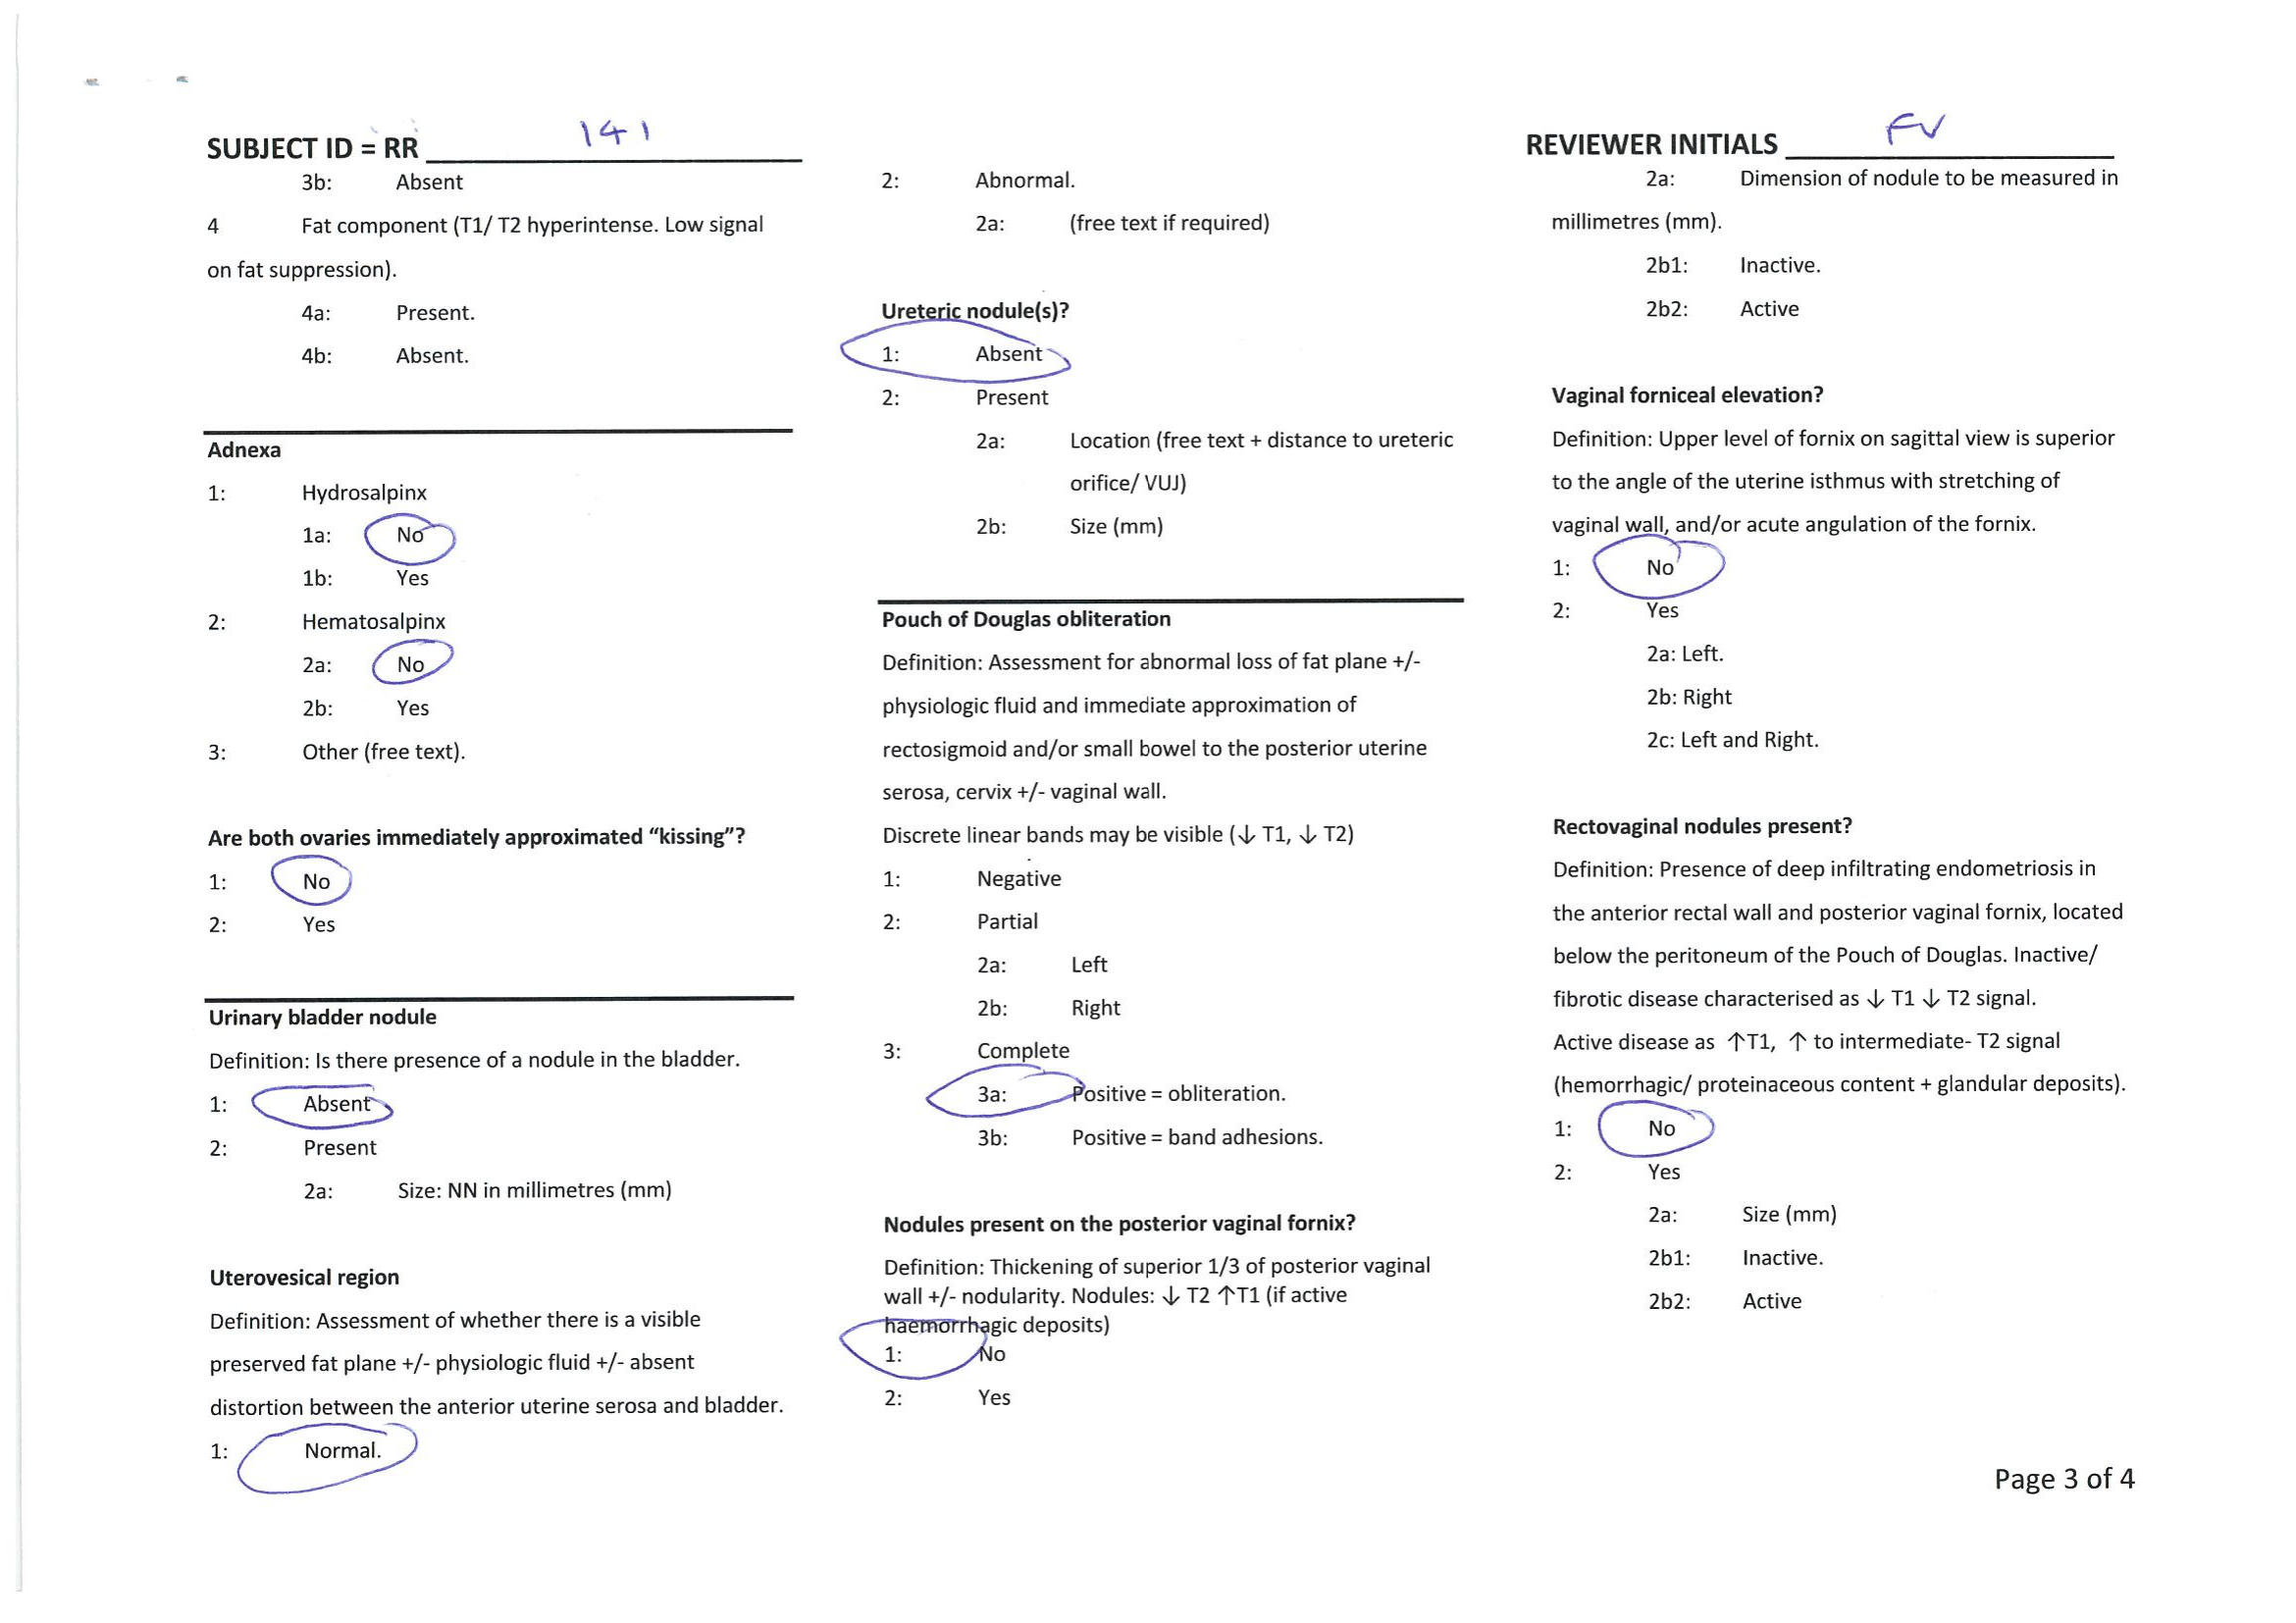 SUBJECT ID = RR 141
3b: Absent
4 Fat component (T1/ T2 hyperintense. Low signal
on fat suppression).
4a: Present.
4b: Absent.
Adnexa
1: Hydrosalpinx
1a: No
1b: Yes
2: Hematosalpinx
2a: No
2b: Yes
3: Other (free text).
Are both ovaries immediately approximated “kissing”?
1: No
2: Yes
Urinary bladder nodule
Definition: Is there presence of a nodule in the bladder.
1: Absent
2: Present
2a: Size: NN in millimetres (mm)
Uterovesical region
Definition: Assessment of whether there is a visible
preserved fat plane +/- physiologic fluid +/- absent
distortion between the anterior uterine serosa and bladder.
1: Normal.
2: Abnormal.
2a: (free text if required)
Ureteric nodule(s)?
1: Absent
2: Present
2a: Location (free text + distance to ureteric
orifice/ VUJ)
2b: Size (mm)
Pouch of Douglas obliteration
Definition: Assessment for abnormal loss of fat plane +/-
physiologic fluid and immediate approximation of
rectosigmoid and/or small bowel to the posterior uterine
serosa, cervix +/- vaginal wall.
Discrete linear bands may be visible (↓ T1, ↓ T2)
1: Negative
2: Partial
2a: Left
2b: Right
3: Complete
3a: Positive = obliteration.
3b: Positive = band adhesions.
Nodules present on the posterior vaginal fornix?
Definition: Thickening of superior 1/3 of posterior vaginal
wall +/- nodularity. Nodules: ↓ T2 ↑T1 (if active
haemorrhagic deposits)
1: No
2: Yes
REVIEWER INITIALS FV
2a: Dimension of nodule to be measured in
millimetres (mm).
2b1: Inactive.
2b2: Active
Vaginal forniceal elevation?
Definition: Upper level of fornix on sagittal view is superior
to the angle of the uterine isthmus with stretching of
vaginal wall, and/or acute angulation of the fornix.
1: No
2: Yes
2a: Left.
2b: Right
2c: Left and Right.
Rectovaginal nodules present?
Definition: Presence of deep infiltrating endometriosis in
the anterior rectal wall and posterior vaginal fornix, located
below the peritoneum of the Pouch of Douglas. Inactive/
fibrotic disease characterised as ↓ T1 ↓ T2 signal.
Active disease as ↑T1, ↑ to intermediate- T2 signal
(hemorrhagic/ proteinaceous content + glandular deposits).
1: No
2: Yes
2a: Size (mm)
2b1: Inactive.
2b2: Active
Page 3 of 4